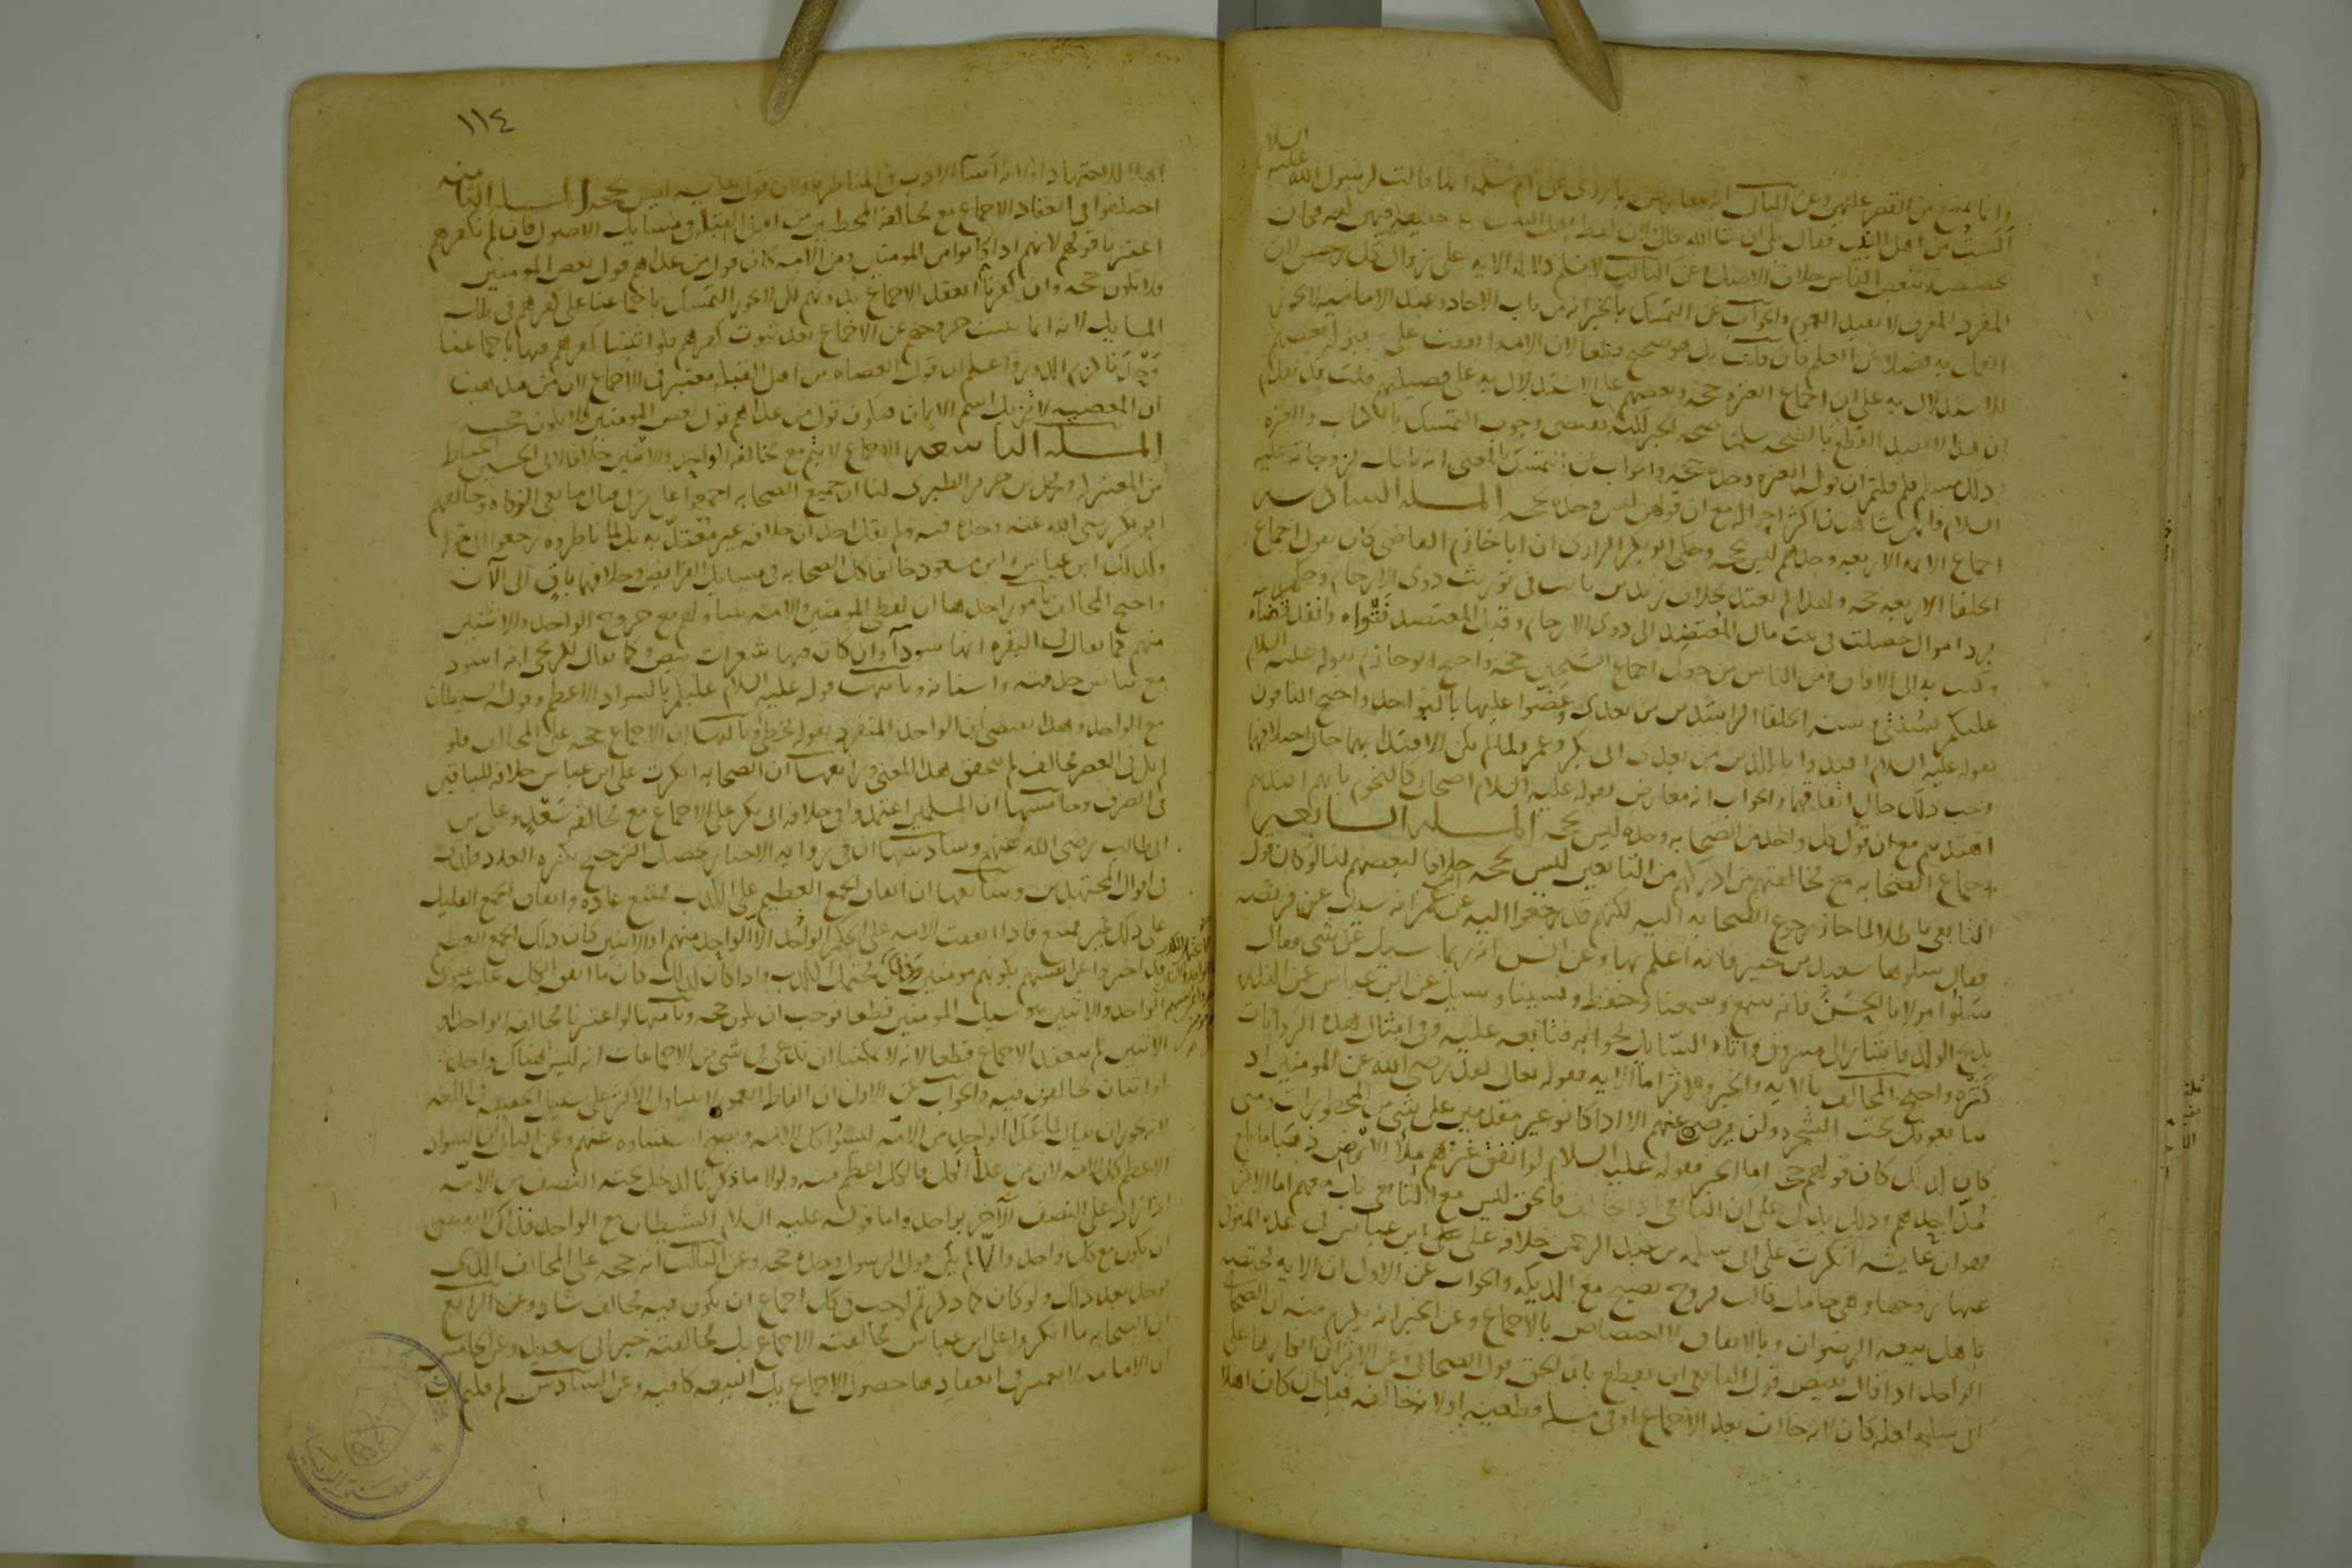 السلام
عليه
وانا يمنع من القصر عليهن وعن الثاني انه معارض بما روى عن ام سلمه انها قالت لرسول الله
الست من اهل البيت فقال بلى ان شا الله تعالى ولان لفظ اهل البيت حقيقه فيهن لغه فكان
تخصيصه ببعض الناس خلاف الاصل وعن الثالث لا نسلم دلاله الايه على زوال كل رجس لان
المفرد المعرف لا يفيد العموم والجواب عن التمسك بالخبر انه من باب الاحاد وعند الاماميه لا يجوز
العمل به فضلا عن العلم فان قلت بل هو صحيح قطعا لان الامه اتفقت على قبوله بعضهم
للاستدلال به على ان اجماع العتره حجه وبعضهم على الاستدلال به على فضيلتهم قلت قد تقدم
ان هذا لا يفيد القطع بالصحه سلمنا صحه الخبر لكنه يقتضى وجوب التمسك بالكتاب والعتره
وذلك مسلم فلم قلتم ان قول العتره وحده حجه والجواب عن التمسك بالمعنى انه باطل بزوجاته عليه
السلام فانهن شاهدن اكثر احواله مع ان قولهن وحده ليس بحجه المسله السادسه
اجماع الايمه الاربعه وحدهم ليس بحجه وحكى ابو بكر الرازى ان ابا خازم القاضى كان يقول اجماع
الخلفا الاربعه حجه ولهذا لم يعتد بخلاف زيد بن ثابت فى توريث ذوى الارحام وحكم
برد اموال حصلت فى بيت مال المعتضد الى ذوى الارحام وقبل المعتضد فتواه وانفذ قضاه
وكتب به الى الافاق ومن الناس من جعل اجماع الشيخين حجه واحتج ابو خازم بقوله عليه السلم
عليكم بسنتى وسنه الخلفا الراشدين من بعدى وعضوا عليها بالنواجد واحتج الثانون
بقوله عليه السلام اقتدوا بالذين من بعدى ابى بكر وعمر ولما لم يكن الاقتدا بهما حال اختلافهما
وجب ذلك حال اتفاقهما والجواب انه معارض بقوله عليه السلام اصحابى كالنجوم بايهم اقتديتم
اهتديتم مع ان قول كل واحد من الصحابه وحده ليس بحجه المسله السابعه
اجماع الصحابه مع مخالفتهم من ادركهم من التابعين ليس بحجه خلافا لبعضهم لنا لو كان قول
التابعى باطلا لما جاز رجوع الصحابه اليه لكنهم قد رجعوا اليه عن ابن عمر انه سيل عن فريضه
فقال سلوها سعيد بن جبير فانه اعلم بها وعن انس انه ربما سيل عن شى فقال
سلوا مولانا الحسن فانه سمع وسمعنا وحفظ ونسينا وسيل عن ابن عباس عن النذر
بذبح الولد فاشار الى مسروق واتاه السايل بجوابه فتابعه عليه وفى امثال هذه الروايات
كثره واحتج المخالف بالايه والخبر والاثر اما الايه فقوله تعالى لقد رضى الله عن المومنين اذ
يبايعونك تحت الشجره ولن يرضى عنهم الا اذا كانوا غير مقدمين على شى من المحظورات ومتى
كان كذلك كان قولهم حجه اما الخبر فقوله عليه السلام لو انفق غيرهم ملأ الارض ذهبا ما بلغ
مد احدهم وذلك يدل على ان التابعى اذا خالف فالحق ليس مع التابعى بل معهم اما الاثر
فهو ان عايشه انكرت على ابى سلمه بن عبد الرحمن خلافه على ابن عباس فى عده المتوفى
عنها زوجها وهى حامل قالت فروج يصيح مع الديكه والجواب عن الاول ان الايه مختصه
باهل بيعه الرضوان وبالاتفاق لا اختصاص بالاجماع وعن الخبر انه يلزم منه ان الصحابى
الواحد اذا قال بنقيض قول التابعى ان يقطع بان الحق قول الصحابى وعن الاثر ان انكارها على
ابى سلمه لعله كان لانه خالف بعد الاجماع او فى مسله قطعيه او لانه خالف قبل ان كان اهلا
١١٤
اهلا للاجتهاد او لانه اسآ الادب فى المناظره ولان قول عايشه ليس بحجه المسله الثامنه
اختلفوا فى انعقاد الاجماع مع مخالفه المخطيين من اهل القبله فى مسايل الاصول فان لم نكفرهم
اعتبرنا قولهم لانهم اذا كانوا من المومنين ومن الامه كان قول من عداهم قول بعض المومنين
فلا يكون حجه وان كفرناهم انعقد الاجماع بدونهم لكن لا يجوز التمسك باجماعنا على كفرهم فى تلك
المسايل لانه انما يثبت خروجهم عن الاجماع بعد ثبوت كفرهم فلو اثبتنا كفرهم فيها باجماعنا
وحدنا لزم الدور واعلم ان قول العصاه من اهل القبله معتبر فى الاجماع لان من مذهبنا
ان المعصيه لا تزيل اسم الايمان فيكون قول من عداهم قول بعض المومنين فلا يكون حجه
المسله التاسعه الاجماع لا يتم مع مخالفه الواحد والاثنين خلافا لابى الحسين الخياط
من المعتزله ومحمد بن جرير الطبرى لنا ان جميع الصحابه اجمعوا على ترك قتال مانعى الزكاه وخالفهم
ابو بكر رضى الله عنه وحده فيه ولم يقل احد ان خلافه غير معتد به بل لما ناظروه رجعوا الى قوله
وكذلك ابن عباس وابن مسعود خالفا كل الصحابه فى مسايل الفرايض وخلافهما باق الى الآن
واحتج المخالف بامور احدها ان لفظى المومنين والامه يتناولهم مع خروج الواحد والاثنين
منهم كما يقال فى البقره انها سودآ وان كان فيها شعرات بيض وكما يقال للزنجى انه اسود
مع بياض حدقته واسنانه وثانيها قوله عليه السلام عليكم بالسواد الاعظم وقوله الشيطان
مع الواحد وهذا يقتضى ان الواحد المنفرد بقوله مخطى وثالثها ان الاجماع حجه على المخالف فلو
لم يكن فى العصر مخالف لم يتحقق هذا المعنى ورابعها ان الصحابه انكرت على ابن عباس خلافه للباقين
فى الصرف وخامسها ان المسلمين اعتمدوا فى خلافه ابى بكر على الاجماع مع مخالفه سعد وعلى بن
ابى طالب رضى الله عنهم وسادسها ان فى روايه الاخبار يحصل الترجيح بكثره العدد فكذلك
فى اقوال المجتهدين وسابعها ان اتفاق الجمع العظيم على الكذب ممتنع عاده واتفاق الجمع القليل
على ذلك غير ممتنع فاذا اتفقت الامه على الحكم الواحد الا الواحد منهم او الاثنين كان ذلك الجمع العظيم
قد اخبروا عن انفسهم بكونهم مومنين وذلك محتمل الكذب واذا كان كذلك كان ما اتفق الكل عليه سوى
الواحد والاثنين هو سبيل المومنين قطعا فوجب ان يكون حجه وثامنها لو اعتبرنا مخالفه الواحد او
الاثنين لم ينعقد الاجماع قطعا لانه لا يمكننا ان ندعى فى شى من الاجماعات انه ليس هناك واحد
او اثنان يخالفون فيه والجواب عن الاول ان الفاظ العموم لا يتناول الاكثر على سبيل الحقيقه فى اللغه
لانه يجوز ان يقال لما عدا الواحد من الامه ليسوا كل الامه ويصح استثناوه عنهم وعن الثانى ان السواد
الاعظم كل الامه لان من عدا الكل فالكل اعظم منه ولولا ما ذكرنا لدخل تحته النصف من الامه
اذا زاد على النصف الآخر بواحد واما قوله عليه السلام الشيطان مع الواحد فذاك لا يقتضى
ان يكون مع كل واحد والا لم يكن قول الرسول وحده حجه وعن الثالث انه حجه على المخالف الذى
يوجد بعد ذلك ولو كان كما ذكرتم لوجب فى كل اجماع ان يكون فيه مخالف شاذ وعن الرابع
ان الصحابه ما انكروا على ابن عباس مخالفته الاجماع بل مخالفته خبر ابى سعيد وعن الخامس
ان الامامه لا يعتبر فى انعقادها حصول الاجماع بل البيعه كافيه وعن السادس لم قلتم ان